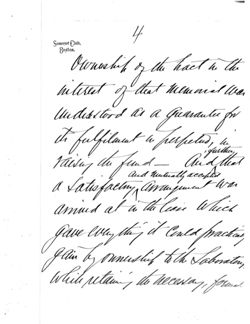 4
Somerset Club,
Boston.
Ownership of the tract in the
interest of that memorial was
understood as a guarantee for
its fulfilment in perpetuity, in
raising the fund — And, that
further
And mutually accepted
a satisfactory arrangement was
arrived at in the lease which
gave everything it could practically
gain by ownership to the Laboratory
while retaining the necessary